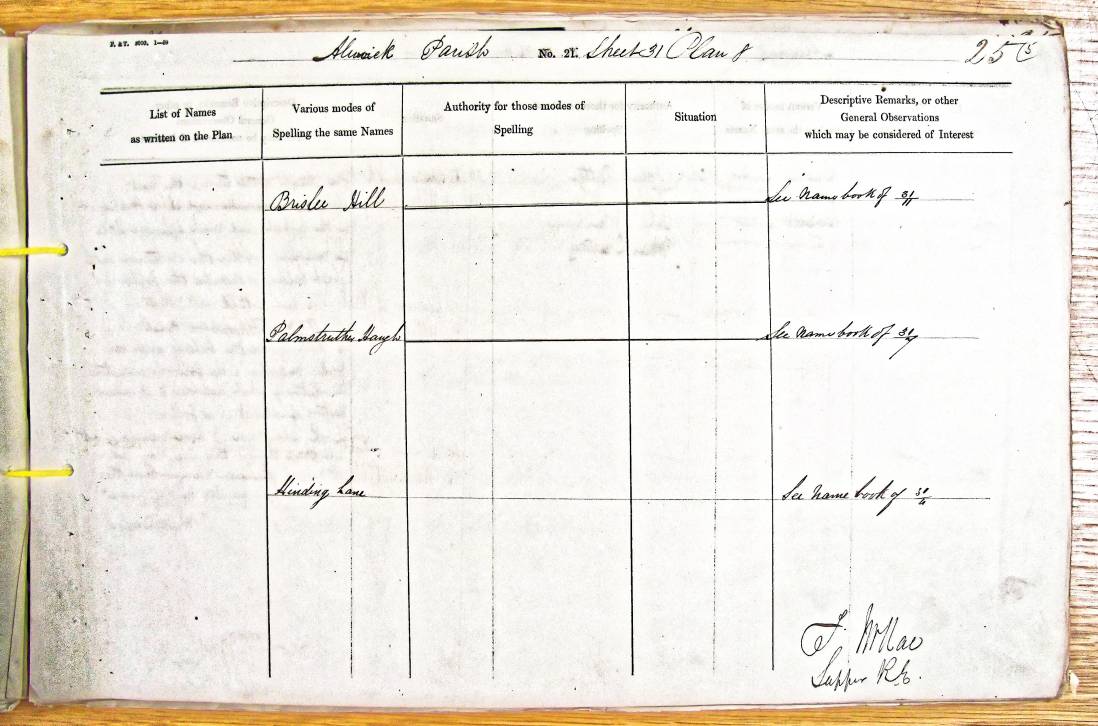 F. & T. 2000. 1—59
Alnwick Parish No. 21. Sheet 31 Plan 8 25
List of Names
as written on the Plan
Various modes of
Spelling the same Names
Authority for those modes of
Spelling
Situation
Descriptive Remarks, or other
General Observations
which may be considered of Interest
Brislee Hill See Name book of 31/11
Palmstruther Haugh See Name book of
Hinding Lane See Name book of
Sapper R.E.